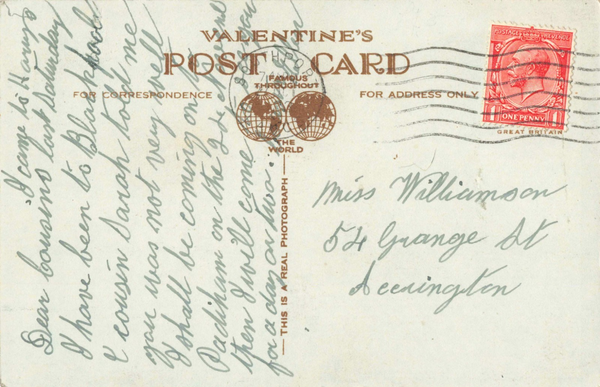 VALENTINE'S
POST CARD
FAMOUS
THROUGHOUT
THE
WORLD
FOR CORRESPONDENCE
FOR ADDRESS ONLY
GREAT BRITAIN
THIS IS A REAL PHOTOGRAPH
POSTAGE
ONE PENNY
Dear Cousins
I came to
last Saturday
I have been to Blackpool
& cousin Sarah told me
you was not very well
I shall be coming on to
Padiham on the 2
then I will come
for a day or two.
Miss Williamson
54 Grange St
Accrington